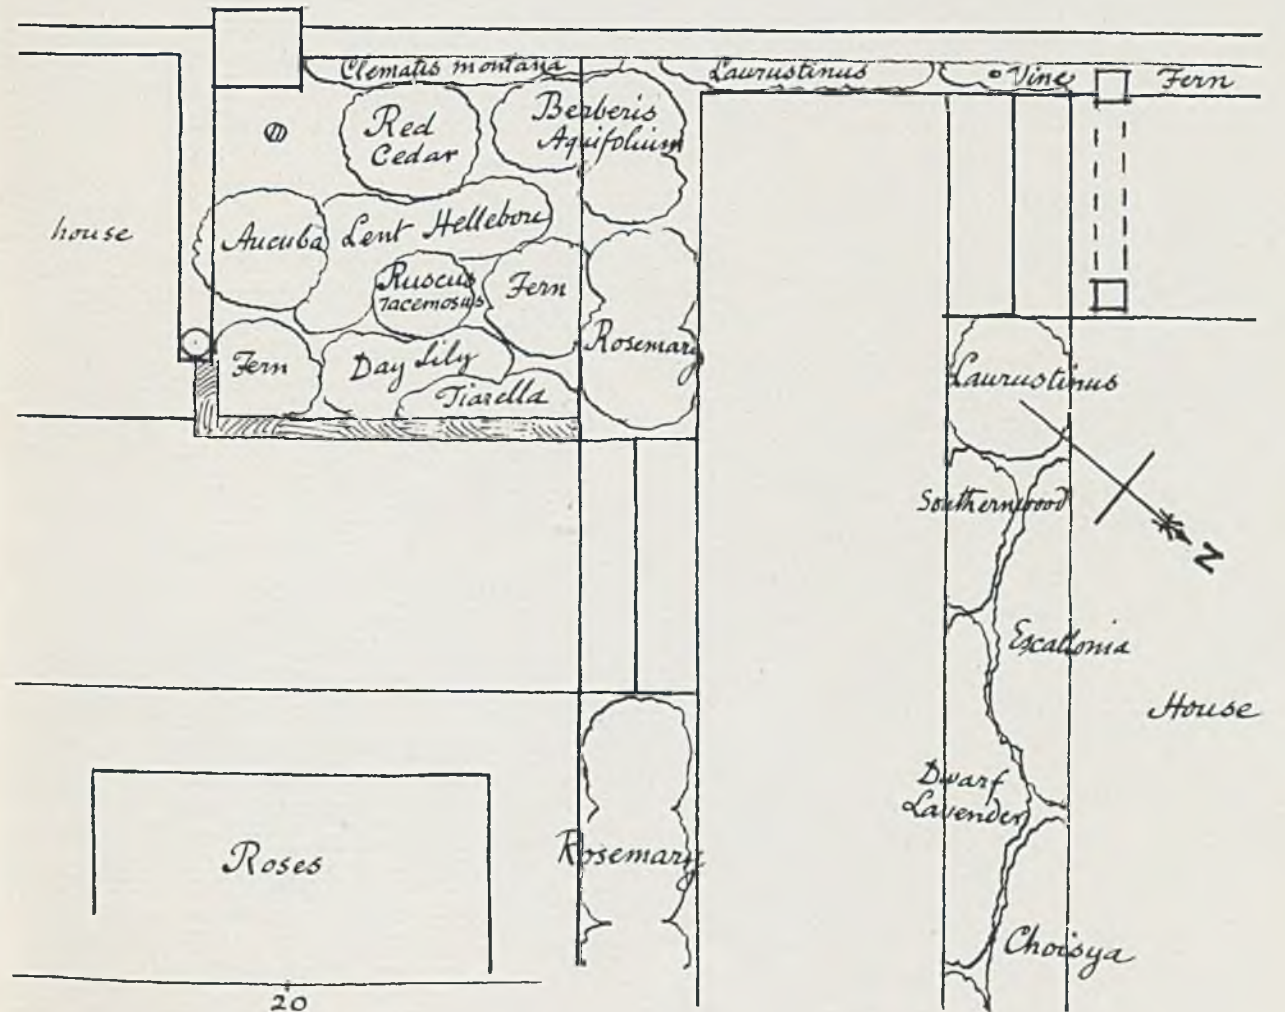 Clematis montana
Laurustinus
Vine
Fern
Red
Cedar
Berberis
Aquifolium
house
Aucuba
Lent Hellebore
Ruscus
racemosus
Fern
Rosemary
Fern
Day Lily
Tiarella
Laurustinus
Southernwood
N
Escallonia
House
Dwarf
Lavender
Roses
Rosemary
Choisya
20